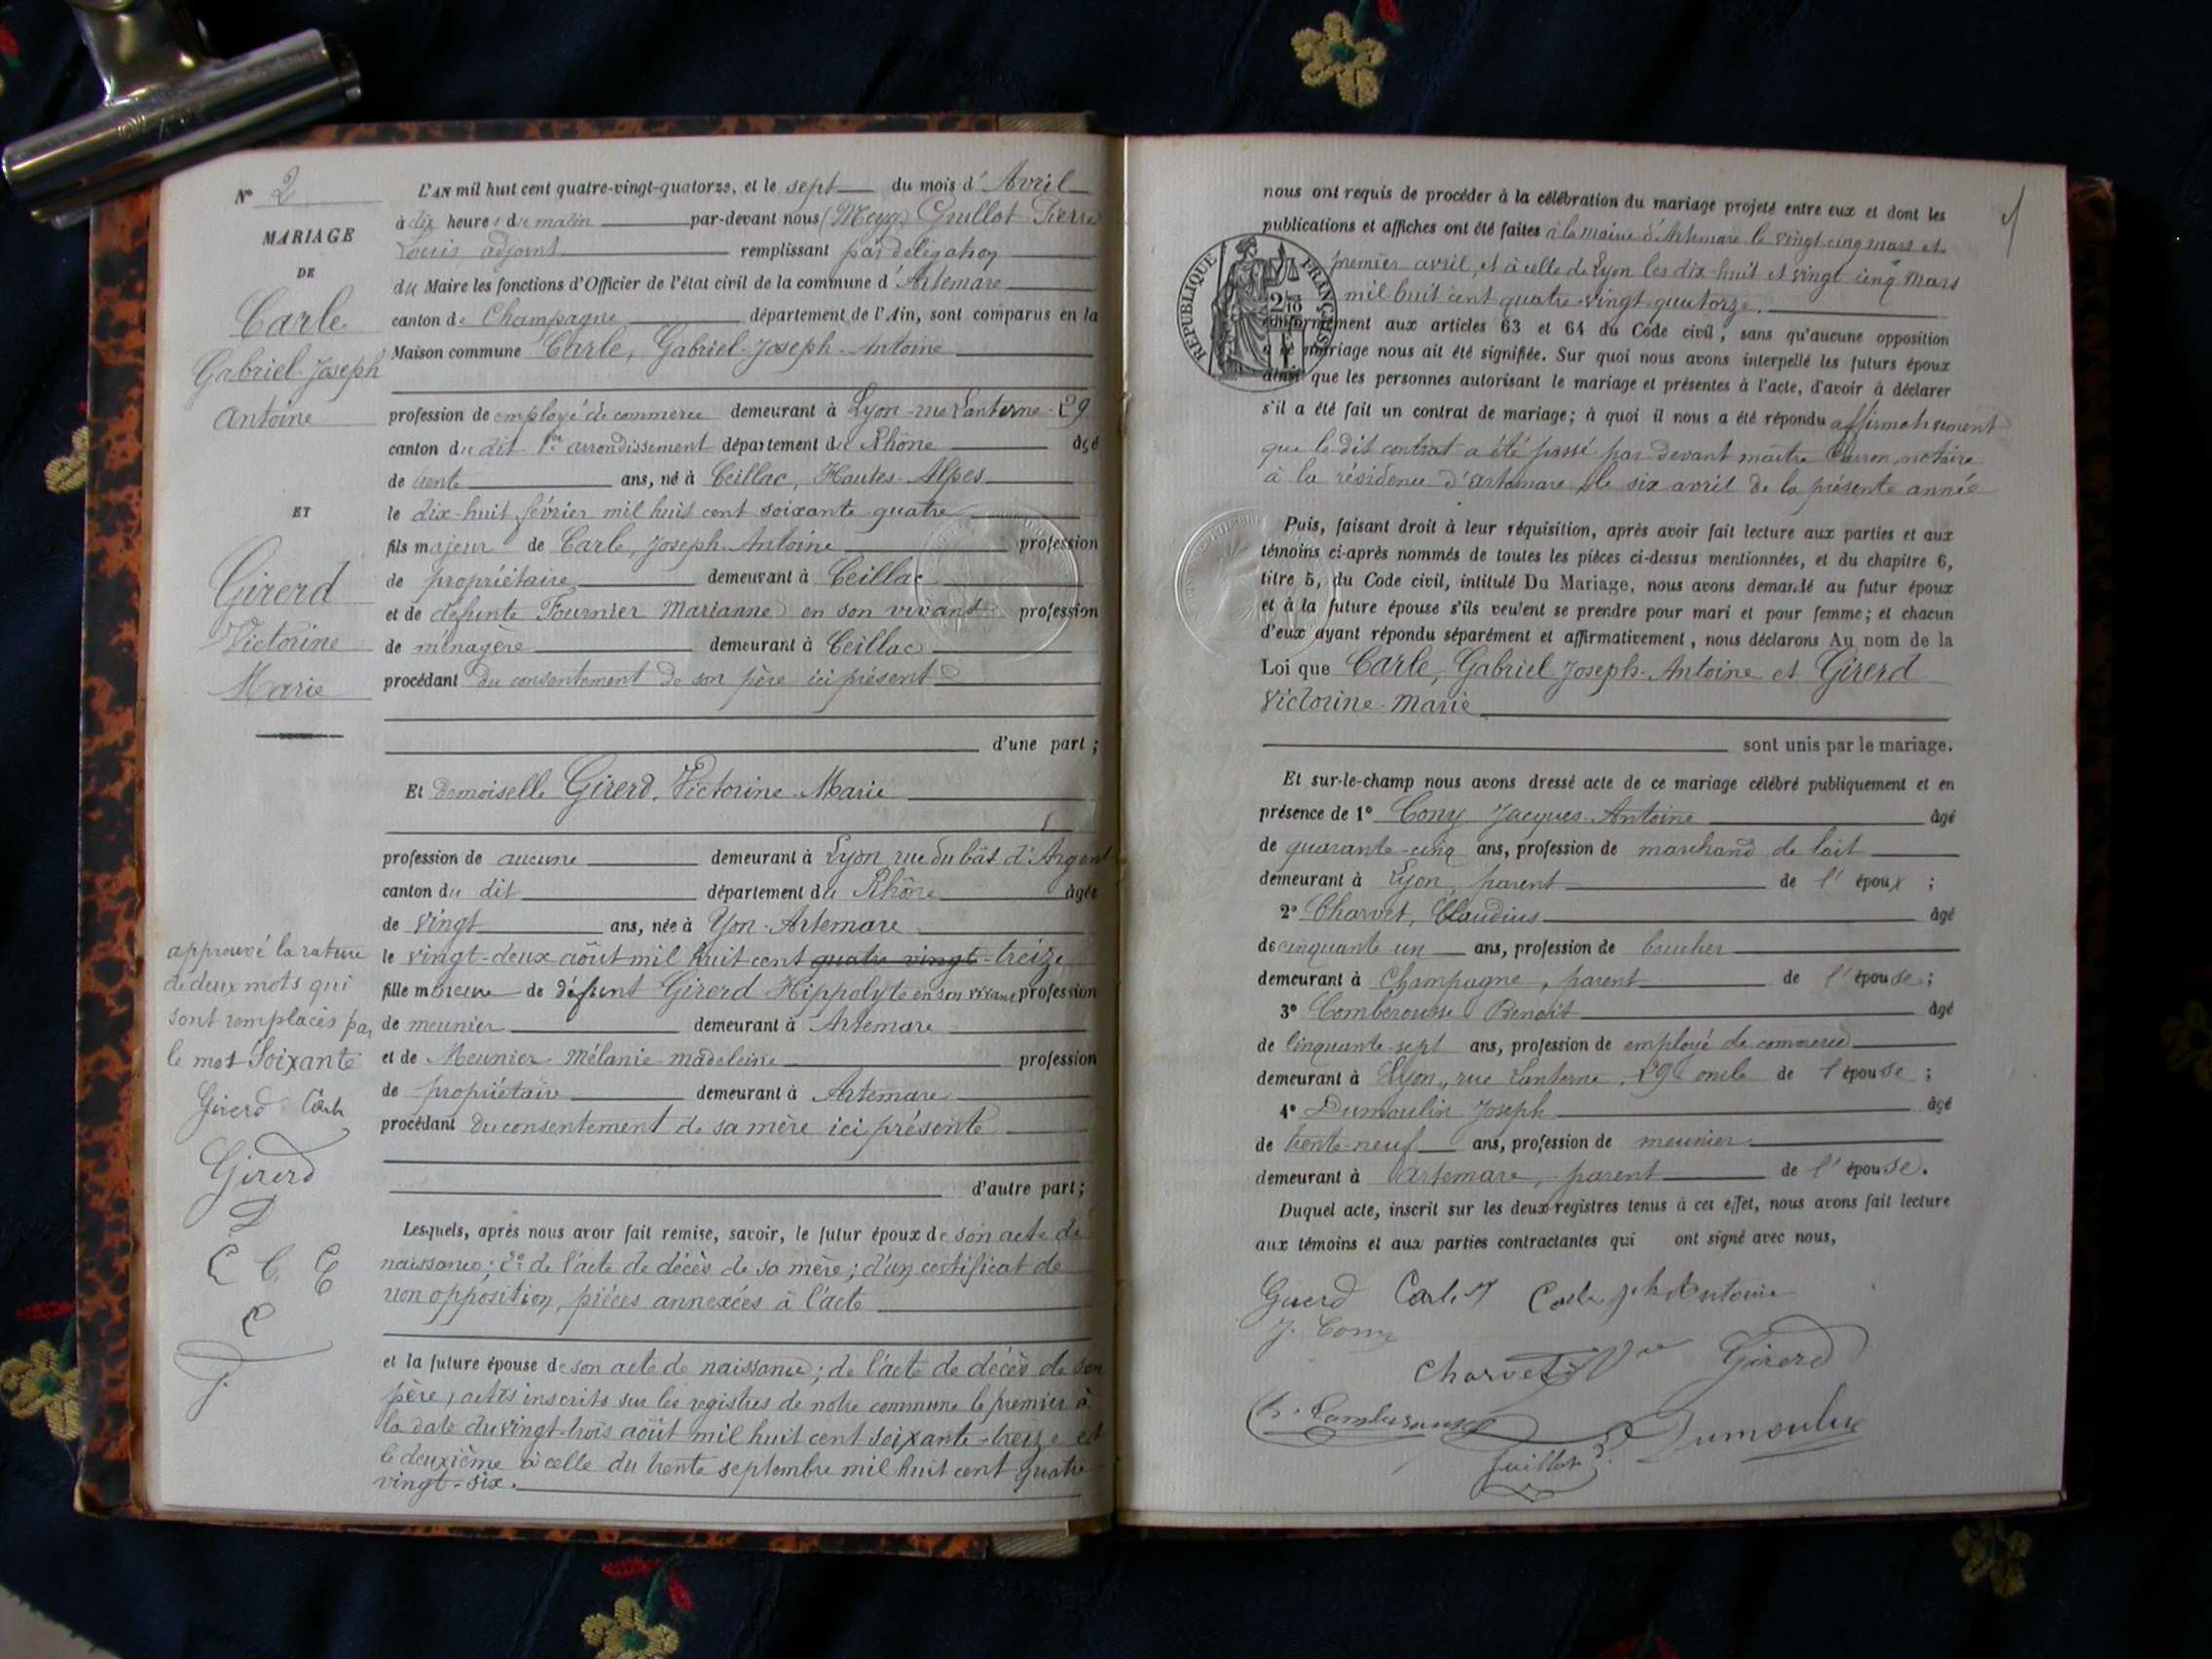 N° 2
MARIAGE
DE
Carle
Gabriel-Joseph
Antoine
ET
Girerd
Victorine
Marie
approuvé la rature
de deux mots qui
sont remplacés par
le mot Soixante
Girerd Carle
Girerd
L'AN mil huit cent quatre-vingt-quatorze, et le sept du mois d'Avril
à dix heures du matin par-devant nous Guillot Pierre
Louis, adjoint remplissant par délégation
du Maire les fonctions d'Officier de l'état civil de la commune d'Artemare
canton de Champagne département de l'Ain, sont comparus en la
Maison commune Carle, Gabriel-Joseph-Antoine
profession de employé de commerce demeurant à Lyon-rue Lanterne-29
canton du dit 1er arrondissement département du Rhône âgé
de trente ans, né à Ceillac, Hautes-Alpes
le dix-huit février mil huit cent soixante-quatre
fils majeur de Carle, Joseph-Antoine profession
de propriétaire demeurant à Ceillac
et de défunte Fournier Marianne en son vivant profession
de ménagère demeurant à Ceillac
procédant du consentement de son père ici présent
d'une part ;
Et Demoiselle Girerd, Victorine-Marie
profession de aucune demeurant à Lyon, rue du bât d'Argent
canton du dit département du Rhône âgée
de vingt ans, née à Yon-Artemare
le vingt-deux août mil huit cent quatre vingt-treize
fille mineure de défunt Girerd Hippolyte en son vivant profession
de meunier demeurant à Artemare
et de Meunier-Mélanie-madeleine profession
de propriétaire demeurant à Artemare
procédant du consentement de sa mère ici présente
d'autre part ;
Lesquels, après nous avoir fait remise, savoir, le futur époux de son acte de
naissance ; 2° de l'acte de décès de sa mère ; d'un certificat de
non opposition, pièces annexées à l'acte
et la future épouse de son acte de naissance ; de l'acte de décès de son
père, actes inscrits sur les registres de notre commune le premier à
la date du vingt-trois août mil huit cent soixante-treize et
le deuxième à celle du trente septembre mil huit cent quatre
vingt-six.
nous ont requis de procéder à la célébration du mariage projeté entre eux et dont les
publications et affiches ont été faites à la mairie d'Artemare le vingt-cinq mars et
premier avril, et à celle de Lyon les dix-huit et vingt cinq Mars
mil huit cent quatre-vingt-quatorze.
RÉPUBLIQUE FRANÇAISE
conformément aux articles 63 et 64 du Code civil, sans qu'aucune opposition
à ce mariage nous ait été signifiée. Sur quoi nous avons interpellé les futurs époux
ainsi que les personnes autorisant le mariage et présentes à l'acte, d'avoir à déclarer
s'il a été fait un contrat de mariage ; à quoi il nous a été répondu affirmativement
que le dit contrat a été passé par devant maître notaire
à la résidence d'Artemare, le six avril de la présente année
Puis, faisant droit à leur réquisition, après avoir fait lecture aux parties et aux
témoins ci-après nommés de toutes les pièces ci-dessus mentionnées, et du chapitre 6,
titre 5, du Code civil, intitulé Du Mariage, nous avons demandé au futur époux
et à la future épouse s'ils veulent se prendre pour mari et pour femme ; et chacun
d'eux ayant répondu séparément et affirmativement, nous déclarons Au nom de la
Loi que Carle, Gabriel Joseph-Antoine et Girerd
Victorine-Marie
sont unis par le mariage.
Et sur-le-champ nous avons dressé acte de ce mariage célébré publiquement et en
présence de 1° Cony Jacques-Antoine âgé
de quarante-cinq ans, profession de marchand de lait
demeurant à Lyon, parent de l'époux ;
2° Charvet, Claudius âgé
de cinquante un ans, profession de boucher
demeurant à Champagne, parent de l'épouse ;
3° Comberousse Benoit âgé
de Cinquante-sept ans, profession de employé de commerce
demeurant à Lyon, rue Lanterne, 29 oncle de l'épouse ;
4° Dumoulin Joseph âgé
de trente-neuf ans, profession de meunier
demeurant à Artemare, parent de l'épouse.
Duquel acte, inscrit sur les deux registres tenus à cet effet, nous avons fait lecture
aux témoins et aux parties contractantes qui ont signé avec nous,
Girerd Carle Carle Antoine
J. Cony
Charvet Girerd
Dumoulin
Guillot